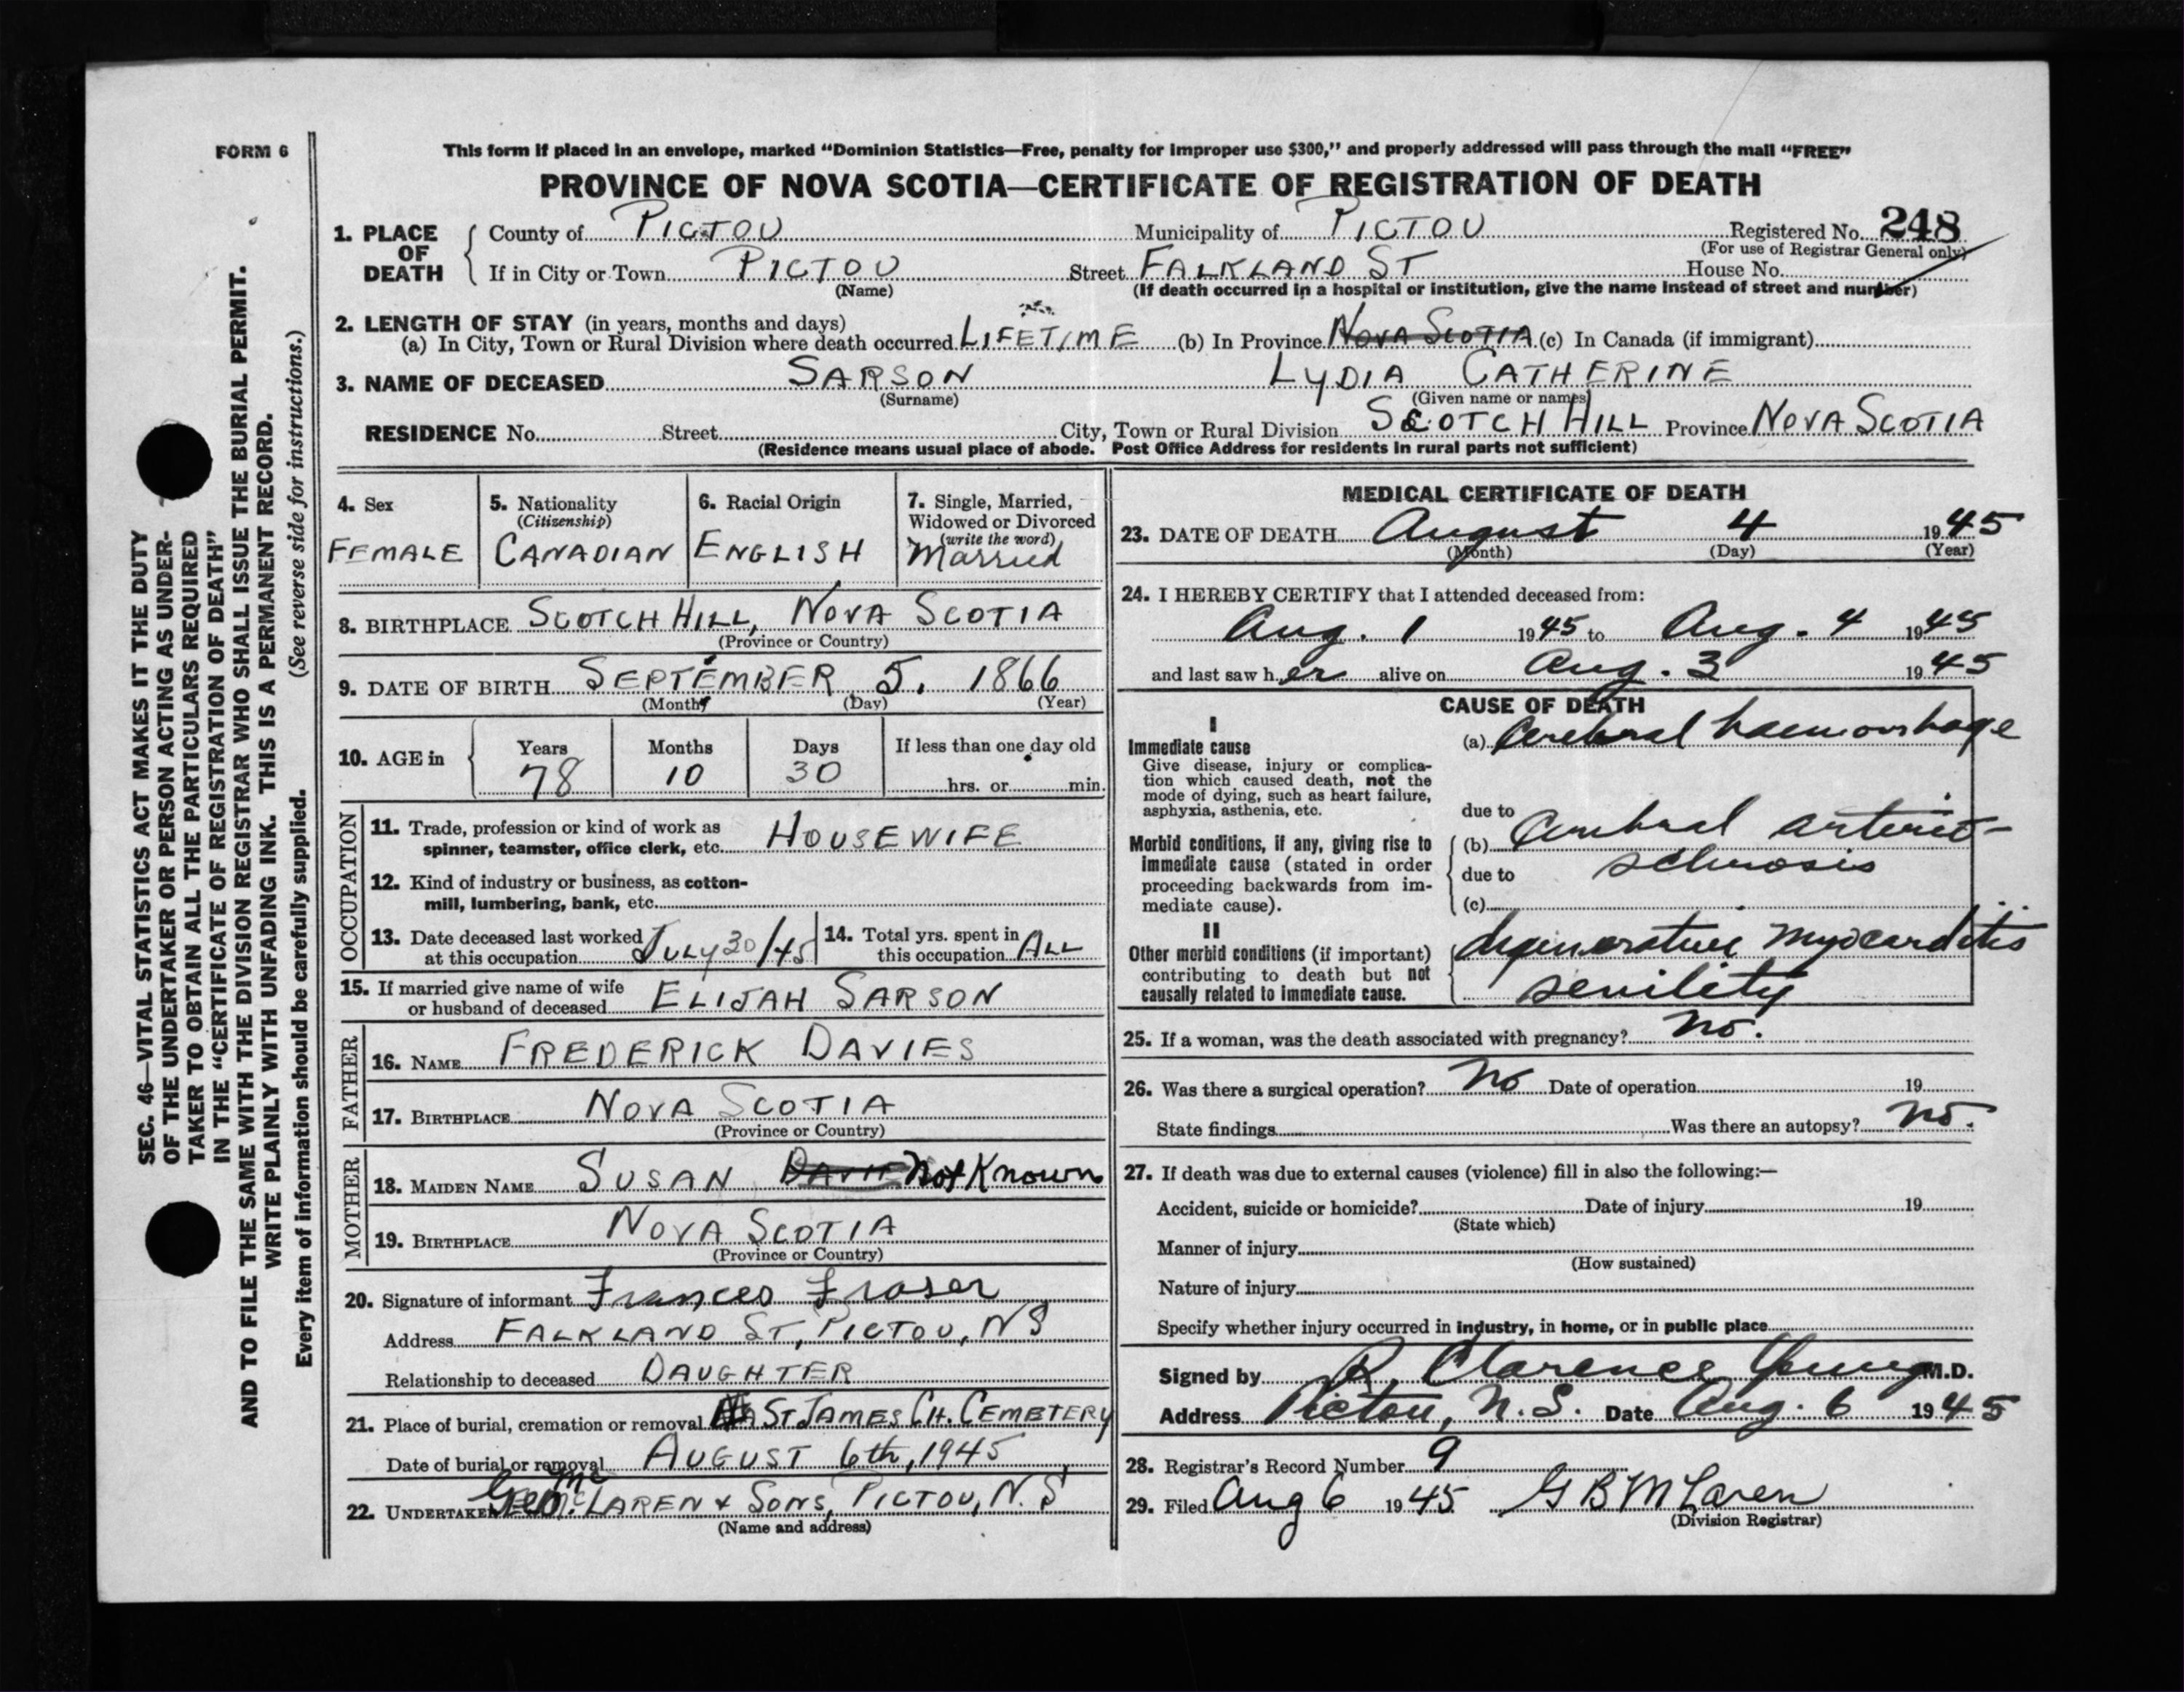 FORM 6
This form if placed in an envelope, marked “Dominion Statistics—Free, penalty for improper use $300,” and properly addressed will pass through the mail “FREE”
PROVINCE OF NOVA SCOTIA—CERTIFICATE OF REGISTRATION OF DEATH
1. PLACE OF DEATH County of PICTOU Municipality of PICTOU Registered No. 248
(For use of Registrar General only)
If in City or Town PICTOU Street FALKLAND ST House No.
(Name) (If death occurred in a hospital or institution, give the name instead of street and number)
2. LENGTH OF STAY (in years, months and days)
(a) In City, Town or Rural Division where death occurred LIFETIME (b) In Province NOVA SCOTIA (c) In Canada (if immigrant)
3. NAME OF DECEASED SARSON LYDIA CATHERINE
(Surname) (Given name or names)
RESIDENCE No. Street City, Town or Rural Division SCOTCH HILL Province NOVA SCOTIA
(Residence means usual place of abode. Post Office Address for residents in rural parts not sufficient)
4. Sex
FEMALE
5. Nationality
(Citizenship)
CANADIAN
6. Racial Origin
ENGLISH
7. Single, Married,
Widowed or Divorced
(write the word)
Married
8. BIRTHPLACE SCOTCH HILL, NOVA SCOTIA
(Province or Country)
9. DATE OF BIRTH SEPTEMBER 5, 1866
(Month) (Day) (Year)
10. AGE in Years Months Days If less than one day old
78 10 30 hrs. or min.
OCCUPATION
11. Trade, profession or kind of work as
spinner, teamster, office clerk, etc. HOUSEWIFE
12. Kind of industry or business, as cotton-
mill, lumbering, bank, etc.
13. Date deceased last worked
at this occupation JULY 30/45
14. Total yrs. spent in
this occupation ALL
15. If married give name of wife
or husband of deceased ELIJAH SARSON
FATHER
16. NAME FREDERICK DAVIES
17. BIRTHPLACE NOVA SCOTIA
(Province or Country)
MOTHER
18. MAIDEN NAME SUSAN Not Known
19. BIRTHPLACE NOVA SCOTIA
(Province or Country)
20. Signature of informant Frances Fraser
Address FALKLAND ST, PICTOU, NS
Relationship to deceased DAUGHTER
21. Place of burial, cremation or removal ST JAMES CH. CEMETERY
Date of burial or removal AUGUST 6th, 1945
22. UNDERTAKER Geo Mc LAREN & SONS, PICTOU, N.S
(Name and address)
MEDICAL CERTIFICATE OF DEATH
23. DATE OF DEATH August 4 1945
(Month) (Day) (Year)
24. I HEREBY CERTIFY that I attended deceased from:
Aug. 1 1945 to Aug. 4 1945
and last saw her alive on Aug. 3 1945
CAUSE OF DEATH
I
Immediate cause
Give disease, injury or complica-
tion which caused death, not the
mode of dying, such as heart failure,
asphyxia, asthenia, etc.
(a) Cerebral haemorrhage
due to
Morbid conditions, if any, giving rise to
immediate cause (stated in order
proceeding backwards from im-
mediate cause).
(b) Cerebral arterio-
due to sclerosis
(c)
II
Other morbid conditions (if important)
contributing to death but not
causally related to immediate cause.
degenerative myocarditis
senility
25. If a woman, was the death associated with pregnancy? no.
26. Was there a surgical operation? No Date of operation 19
State findings Was there an autopsy? no.
27. If death was due to external causes (violence) fill in also the following:—
Accident, suicide or homicide? Date of injury 19
(State which)
Manner of injury
(How sustained)
Nature of injury
Specify whether injury occurred in industry, in home, or in public place
Signed by R. Clarence Young M.D.
Address Pictou, N.S. Date Aug. 6 1945
28. Registrar's Record Number 9
29. Filed Aug 6 1945 G B McLaren
(Division Registrar)
SEC. 46—VITAL STATISTICS ACT MAKES IT THE DUTY
OF THE UNDERTAKER OR PERSON ACTING AS UNDER-
TAKER TO OBTAIN ALL THE PARTICULARS REQUIRED
IN THE “CERTIFICATE OF REGISTRATION OF DEATH”
AND TO FILE THE SAME WITH THE DIVISION REGISTRAR WHO SHALL ISSUE THE BURIAL PERMIT.
WRITE PLAINLY WITH UNFADING INK. THIS IS A PERMANENT RECORD.
Every item of information should be carefully supplied. (See reverse side for instructions.)